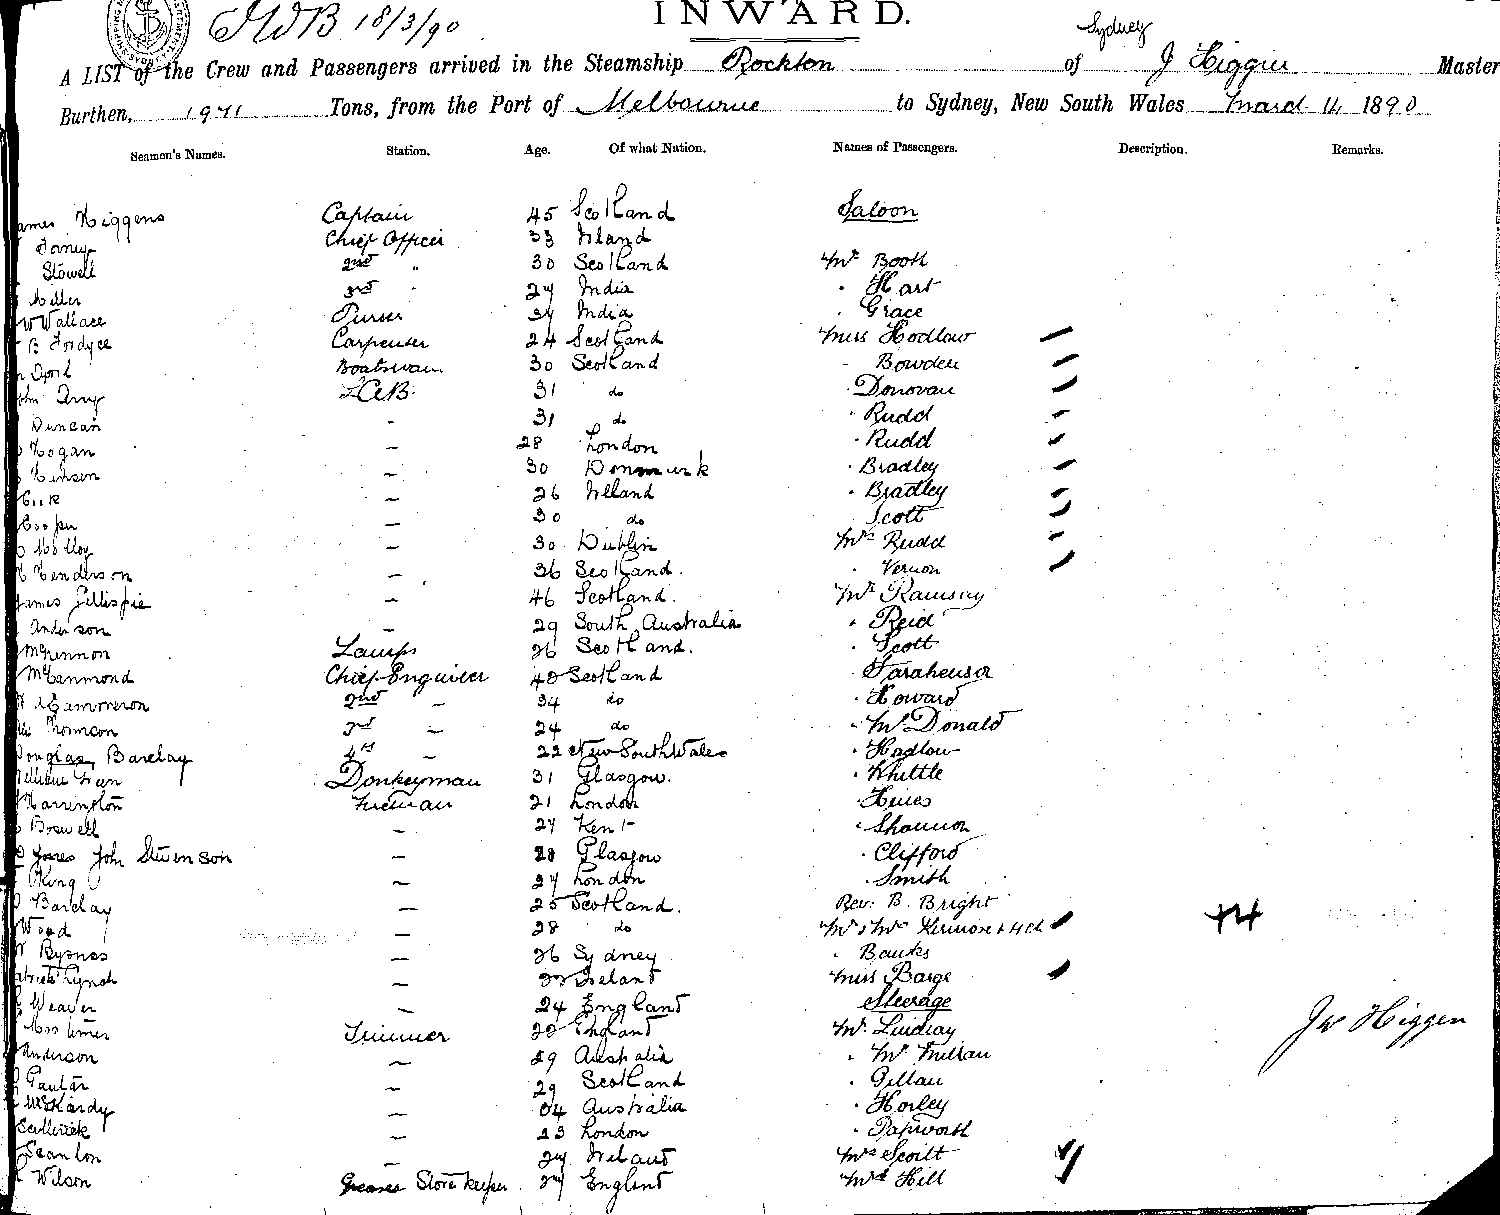 INWARD.
18/3/90
Sydney
A LIST of the Crew and Passengers arrived in the Steamship Rockton of J Higgins Master
Burthen, 1971 Tons, from the Port of Melbourne to Sydney, New South Wales March 14 1890
Seamen's Names. Station. Age. Of what Nation. Names of Passengers. Description. Remarks.
James Higgens Captain 45 Scotland Saloon
Chief Officer 33 Ireland
Stowell 2nd " 30 Scotland Mr Booth
Miller 3rd " 27 India " Hart
W Wallace Purser 37 India " Grace
B Fordyce Carpenter 24 Scotland Miss Hodlow
Boatswain 30 Scotland " Bowden
John Terry AB. 31 do " Donovan
Duncan " 31 do " Rudd
Hogan " 28 London " Rudd
Henson " 30 Denmark " Bradley
26 Ireland " Bradley
Cooper " 30 do " Scott
Molloy " 30 Dublin Mrs Rudd
Henderson " 36 Scotland. " Vernon
James Gillespie " 46 Scotland. Mr Ramsay
Anderson " 29 South Australia " Reid
McKinnon Lamps 26 Scotland. " Scott
Chief Engineer 40 Scotland
Cammeron 2nd " 34 do " Howard
Thomson 3rd " 24 do " McDonald
Douglas Barclay 4th " 22 New South Wales " Hadlow
Donkeyman 31 Glasgow. " Whittle
Harrington Fireman 21 London " Hines
Boswell " 27 Kent " Shannon
John Stevenson " 28 Glasgow " Clifford
King " 27 London " Smith
Barclay " 25 Scotland. Rev. B. Bright
Wood " 28 do Mr & Mrs
Byrnes " 26 Sydney " Banks
Patrick Lynch " Ireland Miss Barge
Weaver " 24 England Steerage
Mortimer Trimmer 22 England Mr. Lindsay
Anderson " 29 Australia " McMillan
" 29 Scotland " Gillan
McHardy " 34 Australia " Horley
" 23 London " Papworth
Scanlon " 27 Ireland Mrs Scott
Wilson Store keeper 27 England Mrs Hill
Jas Higgen